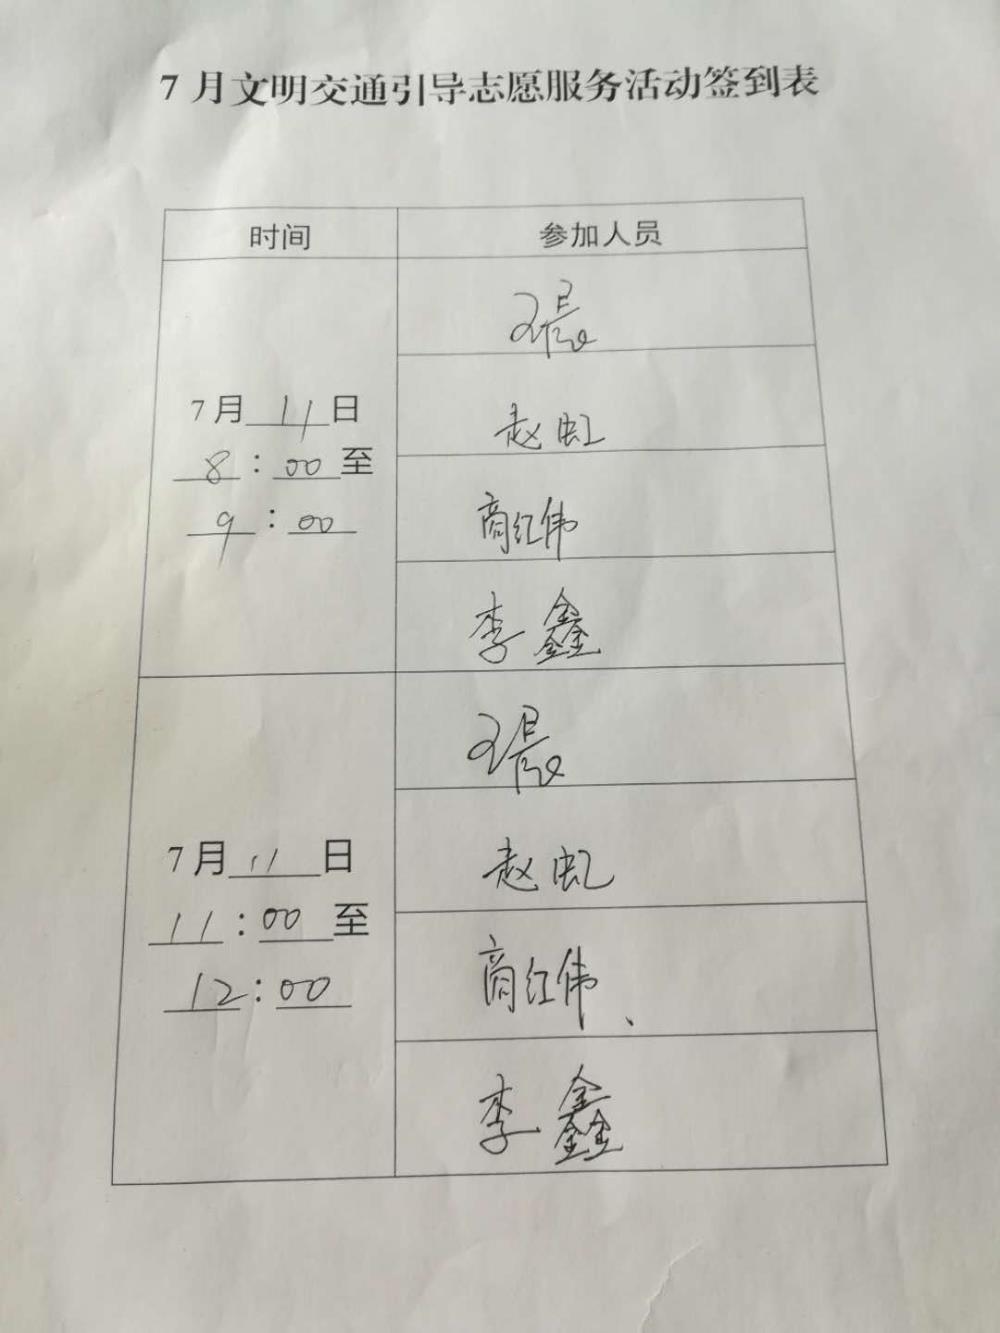 7月文明交通引导志愿服务活动签到表
时间 参加人员
王晨
赵虹
商红伟
李鑫
7月11日
8:00至
9:00
王晨
赵虹
商红伟、
李鑫
7月11日
11:00至
12:00